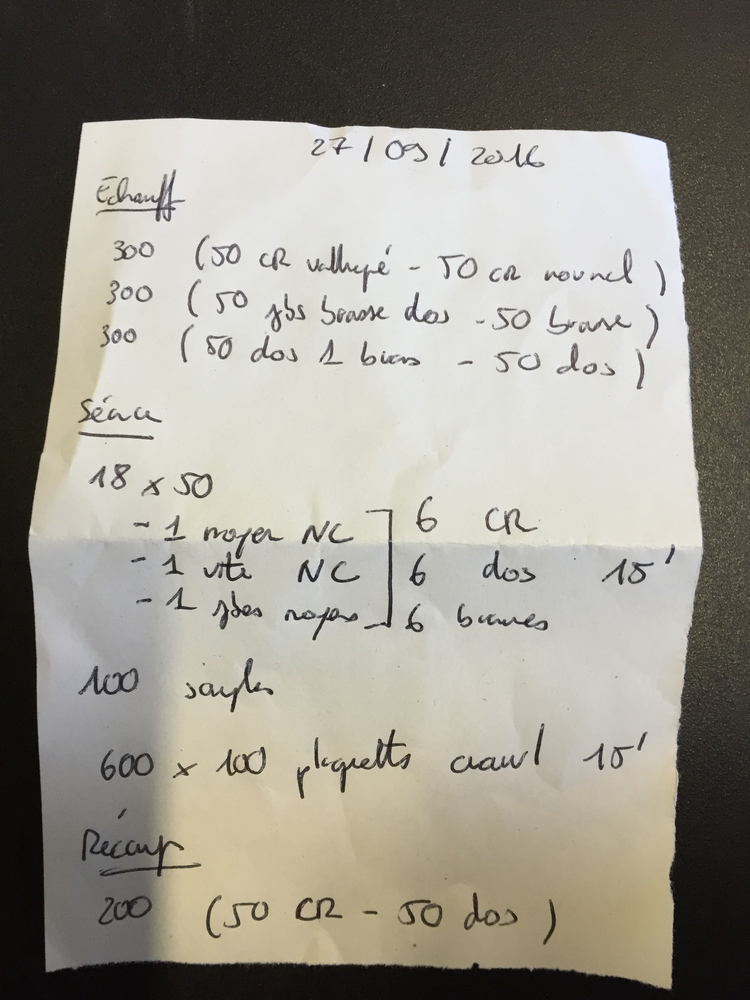 27/09/2016
Echauff
300 (50 CR - 50 CR normal)
300 (50 jbs brasse dos - 50 brasse)
300 (50 dos 1 bras - 50 dos)
Séance
18 x 50
- 1 moyen NC 6 CR
- 1 vite NC 6 dos 15'
- 1 jbes moyen 6 brasses
100 souples
600 x 100 plaquetts crawl 15'
Récup
200 (50 CR - 50 dos)